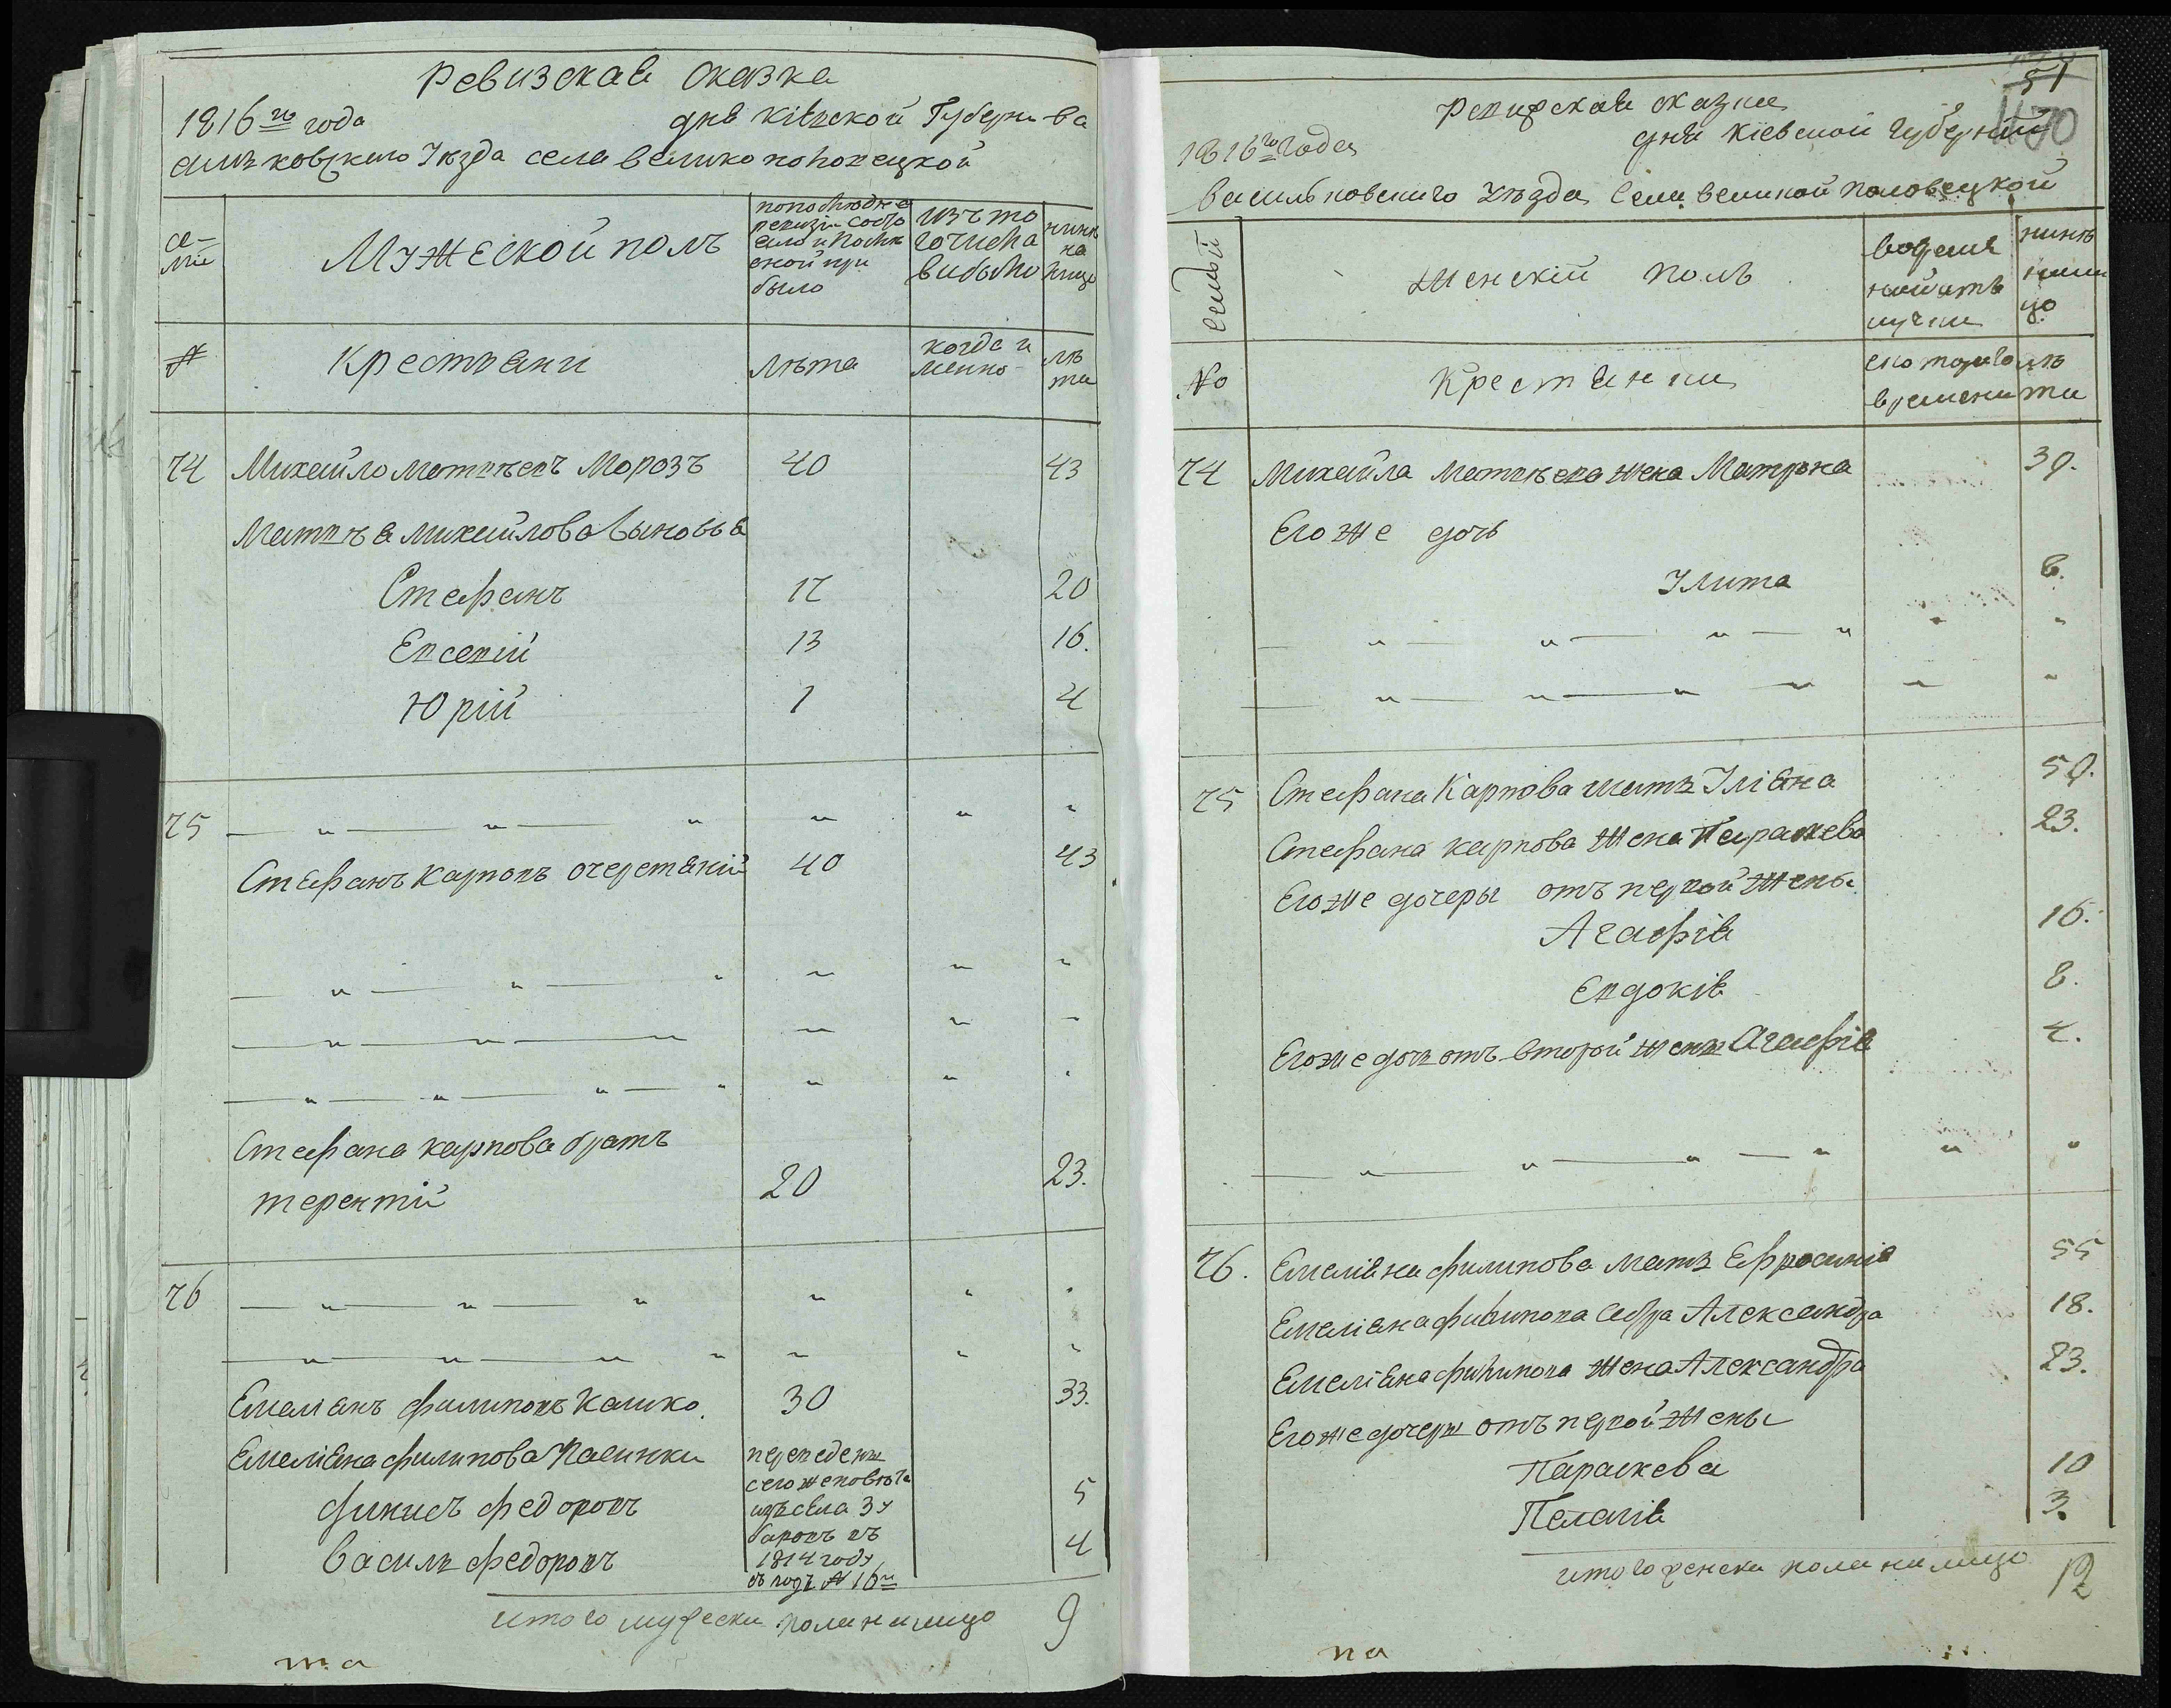 Ревизская сказка
1816го года дня Кіевской Губерни Ва
силъковского Уезда села велико половецкой
се-
міи
Мужеской полъ
по последне
ревизіи состо
яло и после
оной при
было
изъ то
го числа
выбыло
ныне
на
лицо
№
Крестьяни
лета
когда и
менно
ле
та
74 Михайло матвеевъ Морозъ 40 43
Матвея михайлова сыновья
Стефанъ 17 20
Евсевій 13 16.
Юрій 1 4
75
Стефанъ Карповъ очеретяній 40 43
Стефана карпова братъ
терентій 20 23.
76
Емеліянъ филиповъ Калико. 30 33.
Емеліяна филипова Пасинки
переведены
с его же повета
изъ села Зу
баровъ въ
1814 году
финисъ федоровъ 5
Василь федоровъ 4
итого мужеска пола налицо 9
та
51
470
Ревизская сказка
1816го года дня Кіевской губерніи
Васильковского уезда Села великой половецкой
семьи
женскій полъ
ныне
нали
цо
№
Крестянки
с которого
времени
ле
та
74 Михайла матвеева жена Матрона 39.
Его же дочь
Улита 8.
75 Стефана Карпова мать Уліяна 59.
Стефана карпова жена Параскева 23.
Его же дочеры отъ первой жены
Агафія 16.
Евдокія 8.
Его же дочь отъ второй жены Агафія 4.
76. Емеліяна филипова мать Ефросинія 55
Емеліяна филипова сестра Александра 18.
Емеліяна филипова жена Александра 23.
Его же дочеры отъ первой жены
Параскева 10
Пелагія 3.
итого женска пола налицо 12
па